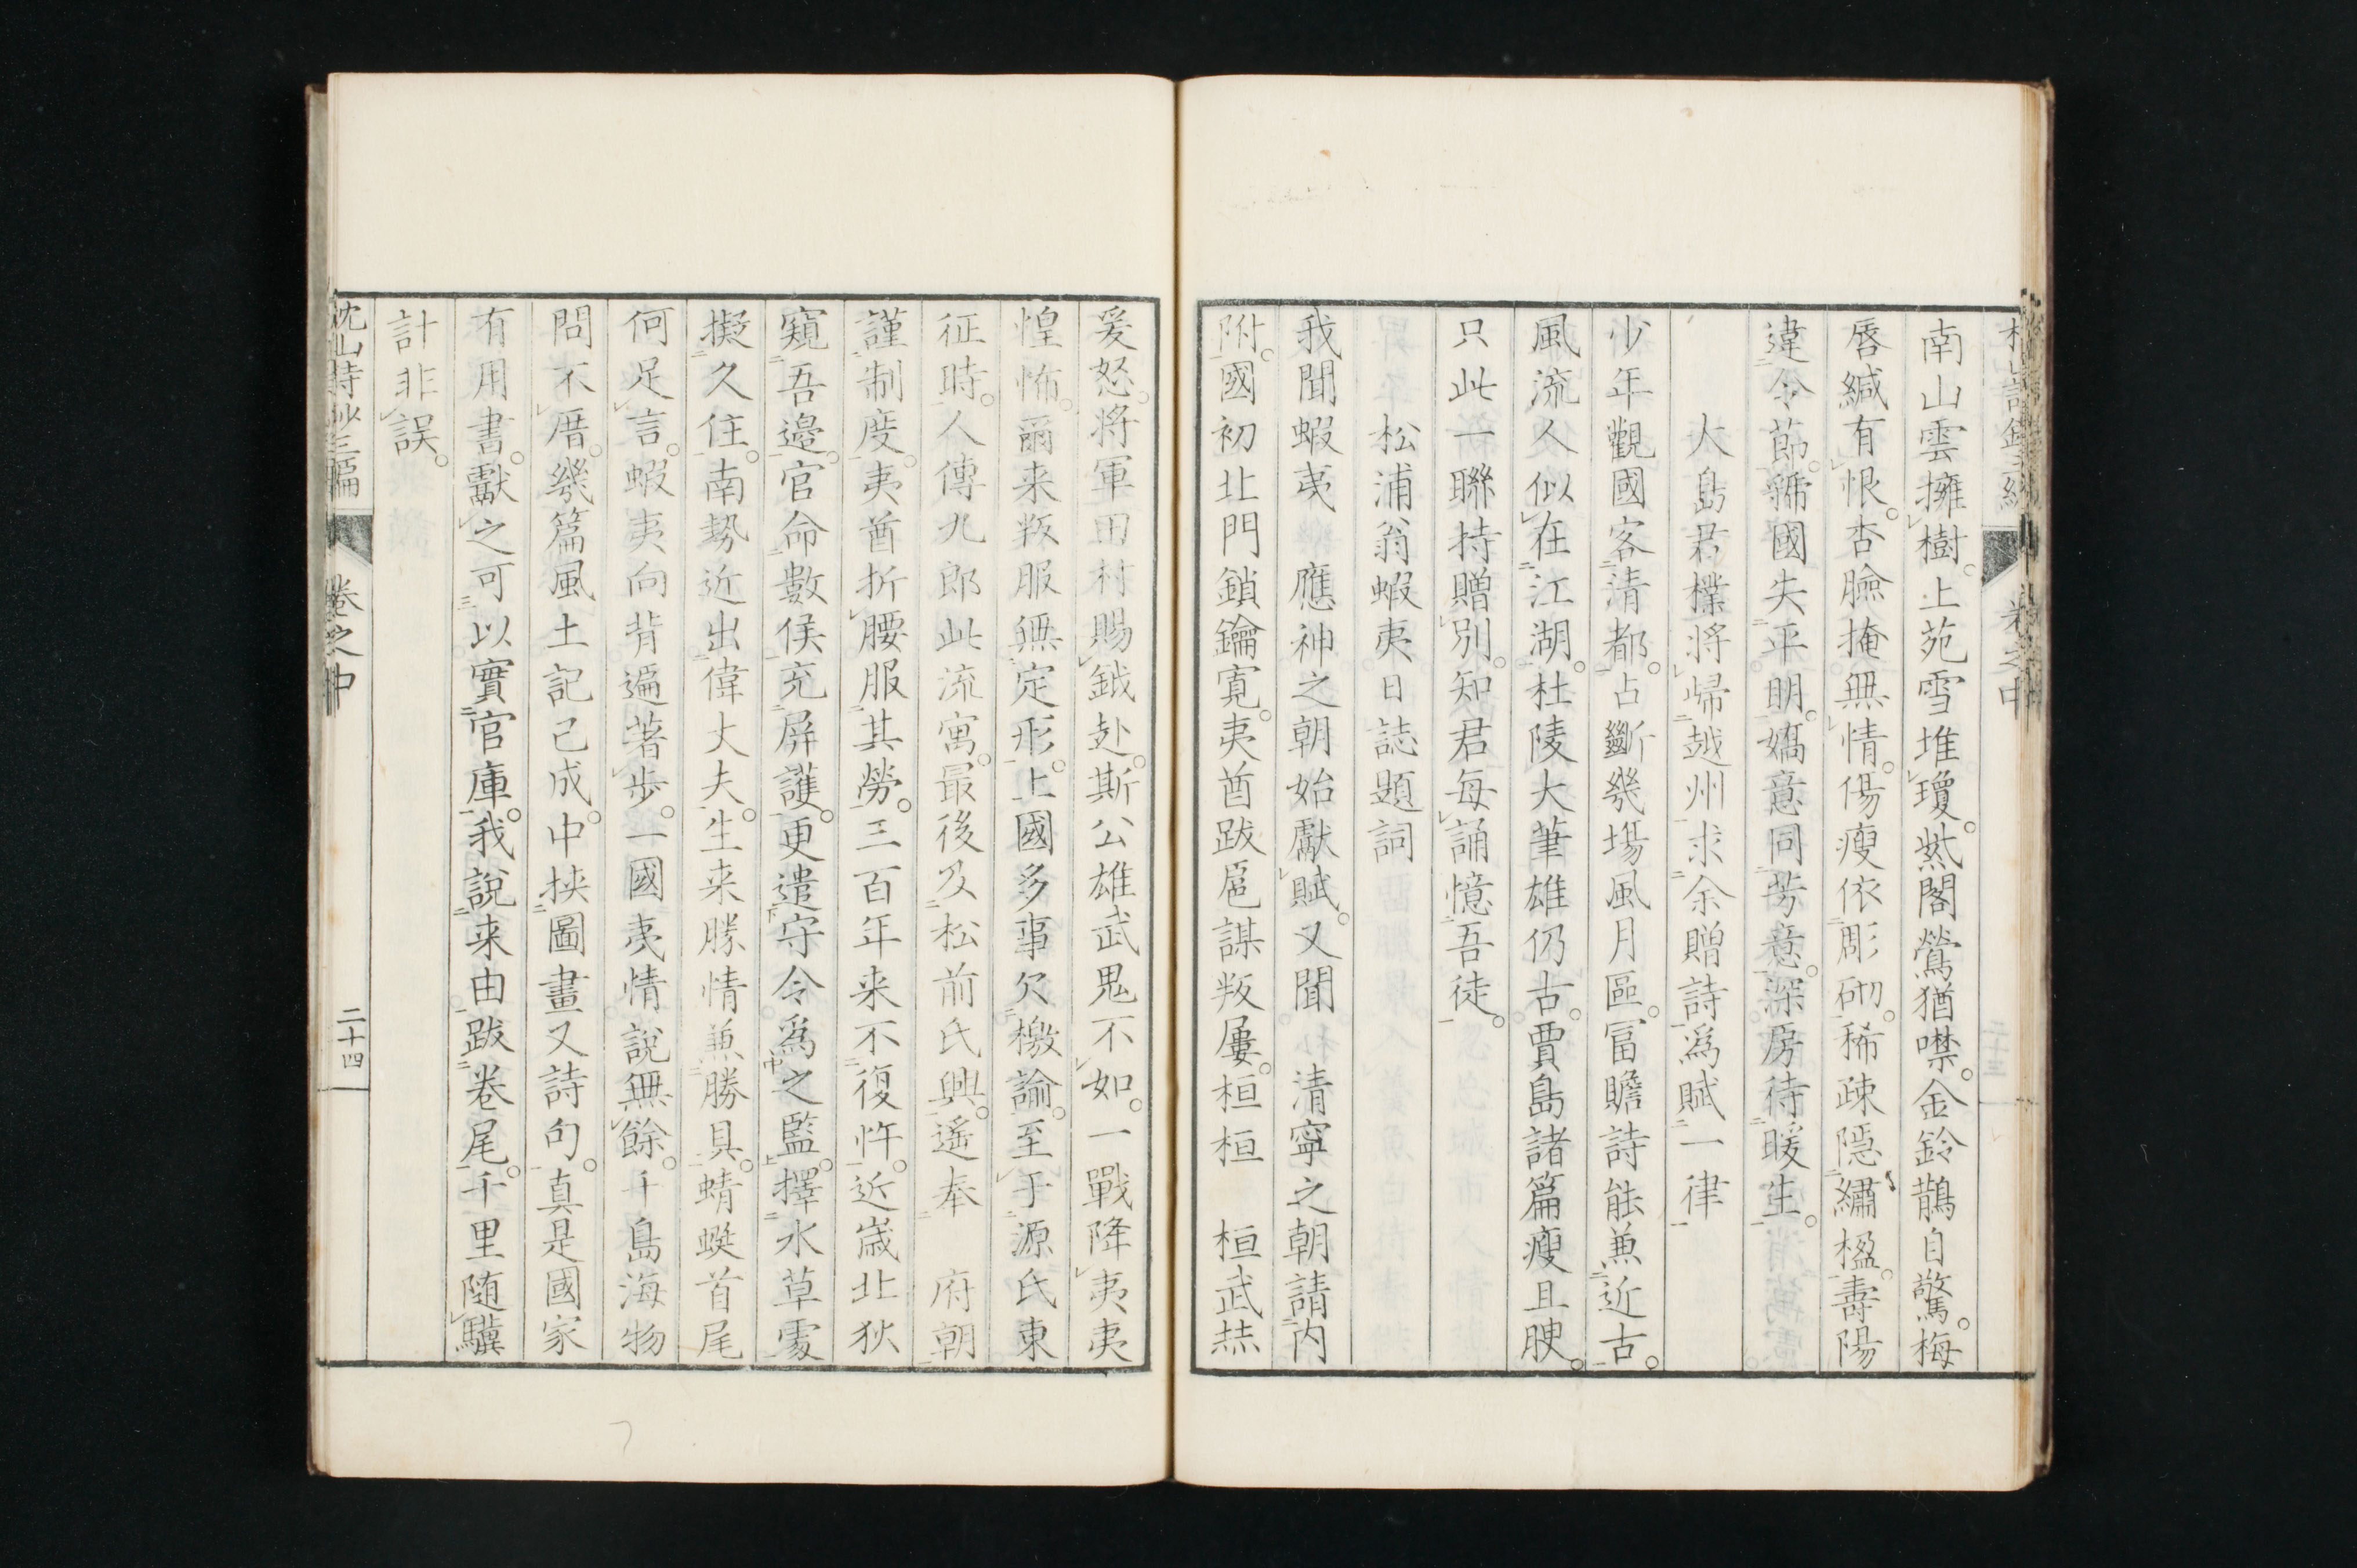 南山雲擁樹。上苑雪堆瓊。紫閣鶯猶噤。金鈴鵲自驚。梅
唇緘有恨。杏臉掩無情。傷瘦依彫砌。稀疎隠繡楹。壽陽
違令節。稱國失平明。嬌意同芳意。深房待暖生。
大島君檏将歸越州求余贈詩爲賦一律
少年觀國客清都。占斷幾場風月區。冨贍詩能兼近古。
風流人似在江湖。杜陵大筆雄仍古。賈島諸篇瘦且腴。
只此一聯持贈別。知君每誦憶吾徒。
松浦翁蝦夷日誌題詞
我聞蝦夷 應神之朝始獻賦。又聞 清寧之朝請内
附。國初北門鎖鑰寛。夷酋跋扈謀叛屢。桓桓 桓武赫
爰怒。将軍田村賜鉞赴。斯公雄武鬼不如。一戰降夷夷
惶怖。爾来叛服無定形。上國多事欠檄諭。至于源氏東
征時。人傳九郎此流寓。最後及松前氏興。遙奉 府朝
謹制度。夷酋折腰服其勞。三百年来不復忤。近嵗北狄
窺吾邉。官命數侯充屏護。更遣守令爲之監。擇水草處
擬久住。南勢近出偉丈夫。生来勝情兼勝具。蜻蜓首尾
何足言。蝦夷向背遍著歩。一國夷情說無餘。千島海物
問不厝。幾篇風土記已成。中挟圖畫又詩句。真是國家
有用書。獻之可以實官庫。我說来由跋巻尾。千里随驥
計非誤。
枕山詩鈔三編 巻之中 二十四